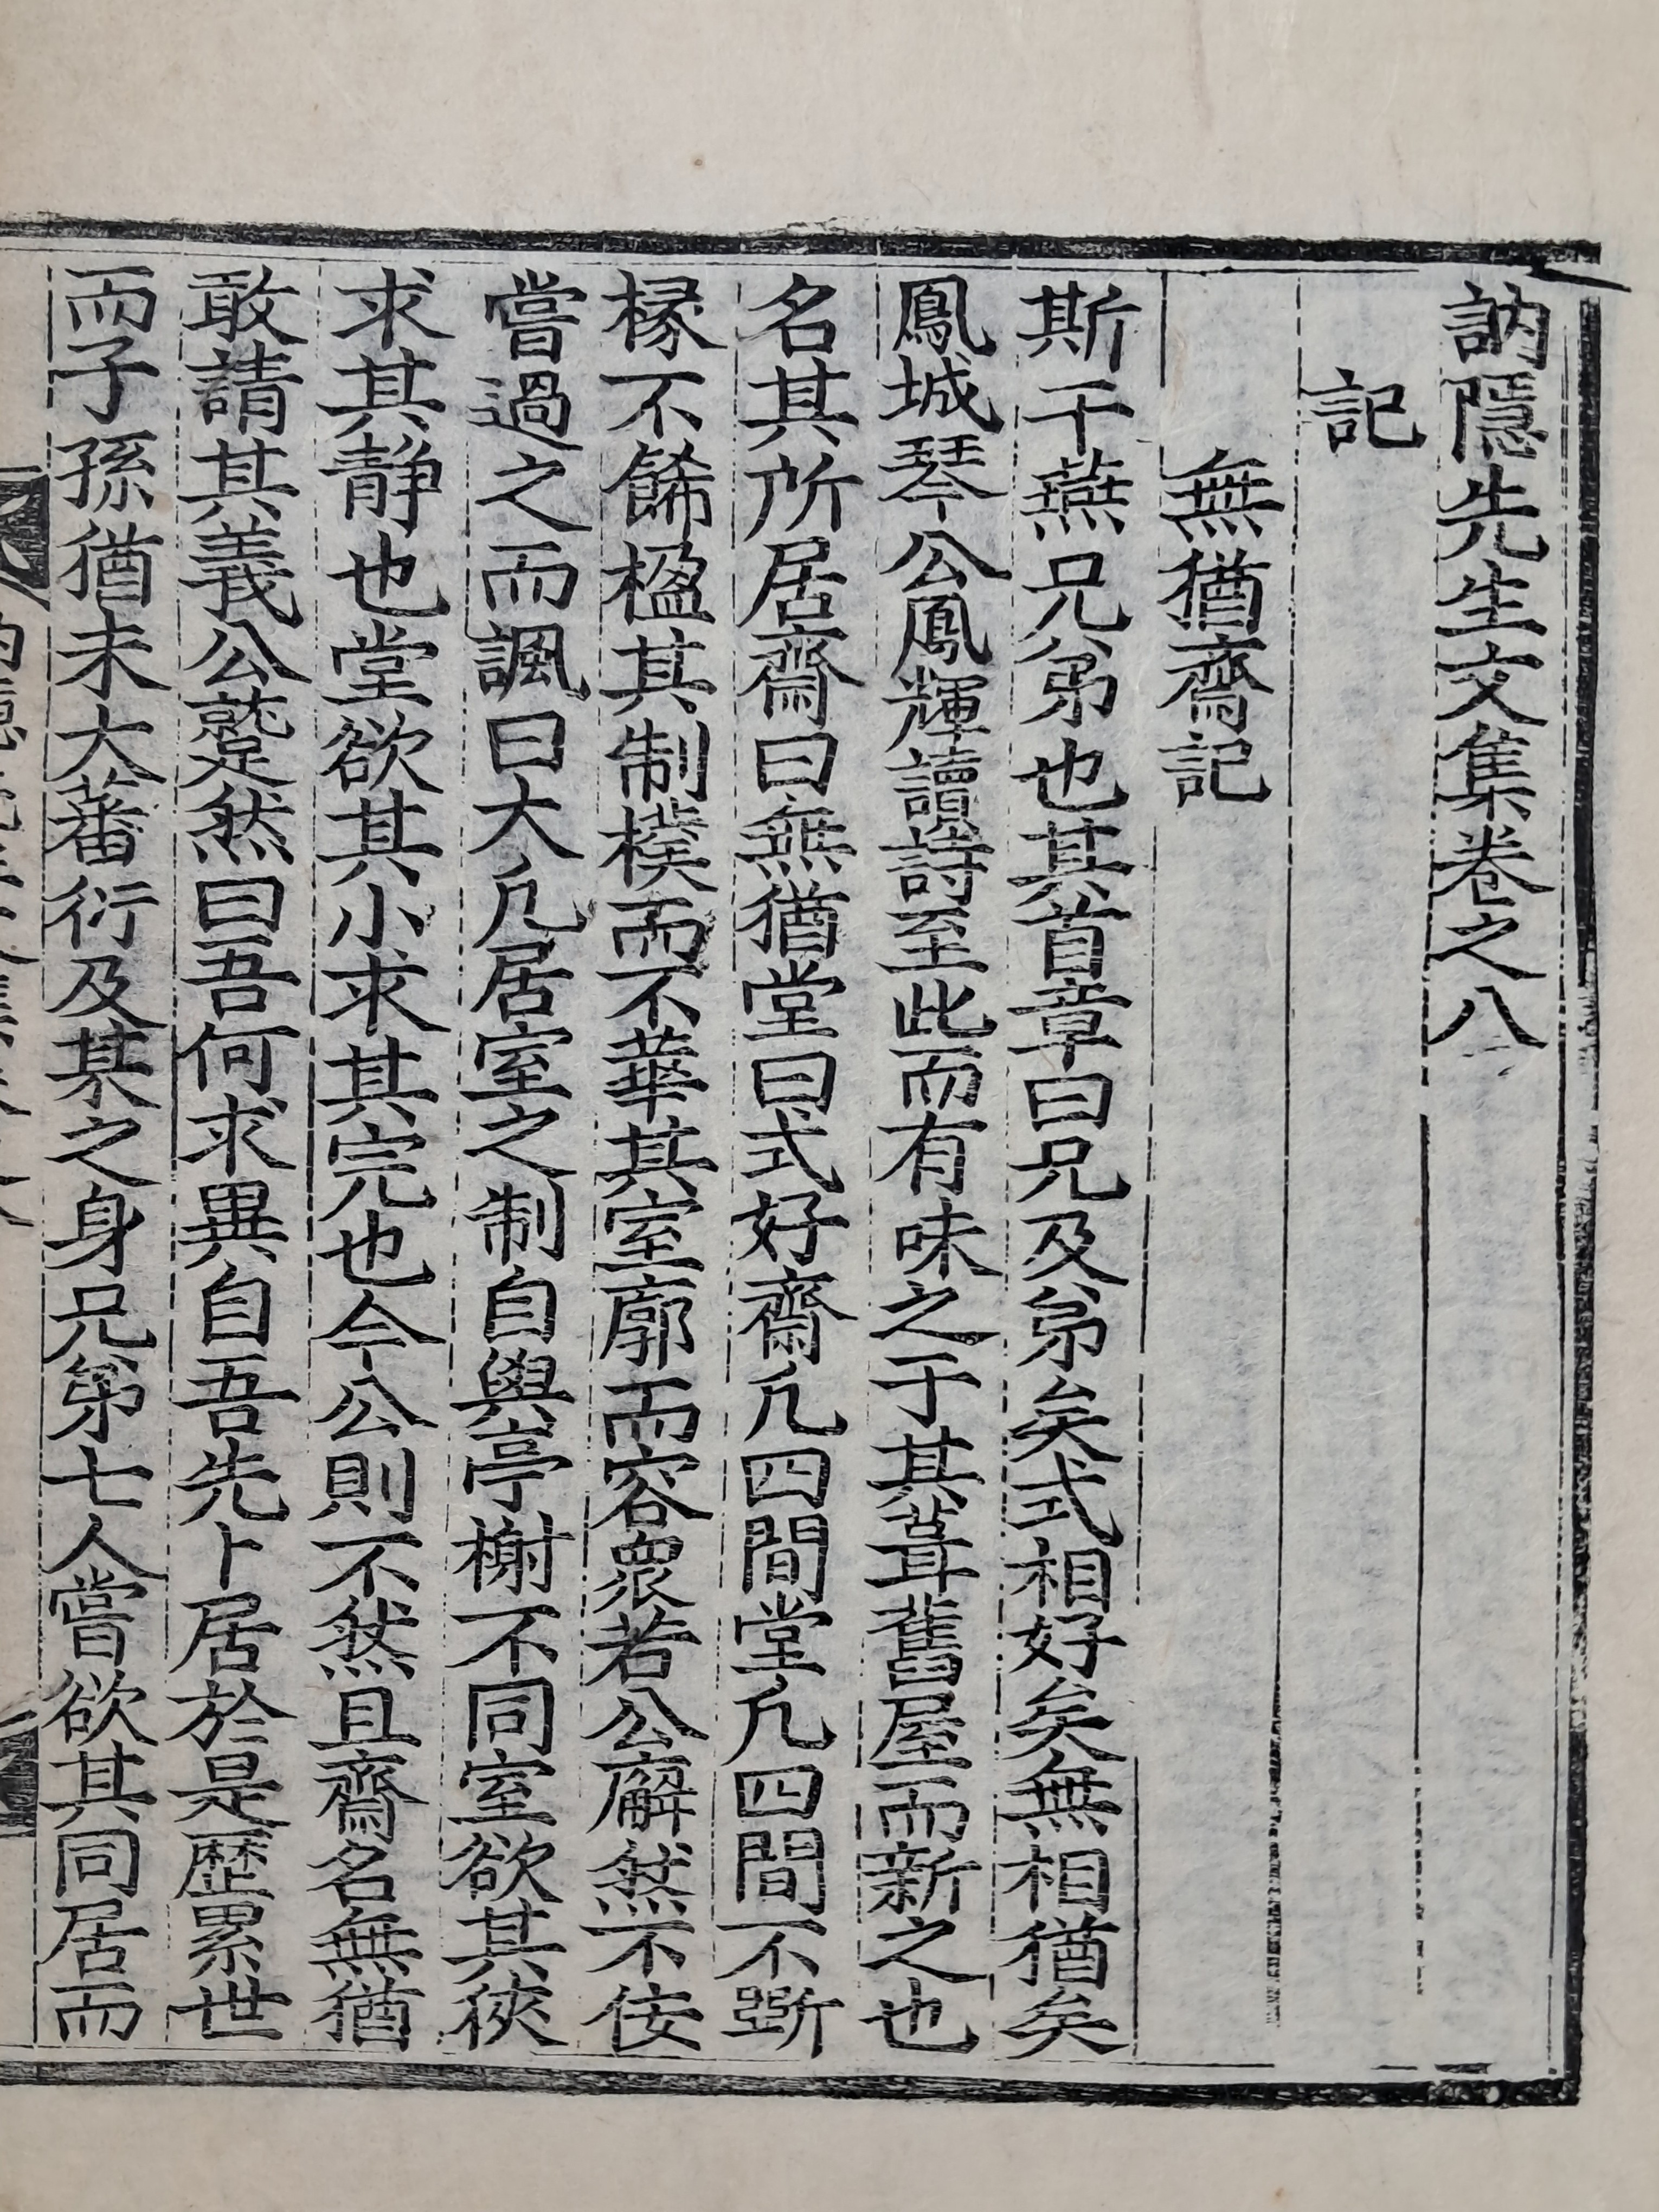 訥隱先生文集卷之八
記
無猶齋記
斯干燕兄弟也其首章曰兄及弟矣式相好矣無相猶矣
鳳城琴公鳳輝讀詩至此而有味之于其葺舊屋而新之也
名其所居齋曰無猶堂曰式好齋凡四間堂凡四間不斲
椽不餙楹其制樸而不華其室廓而容衆若公廨然不佞
嘗過之而諷曰大凡居室之制自與亭榭不同室欲其狹
求其靜也堂欲其小求其完也今公則不然且齋名無猶
敢請其義公蹵然曰吾何求異自吾先卜居於是歷累世
而子孫猶未大蕃衍及某之身兄第七人嘗欲其同居而